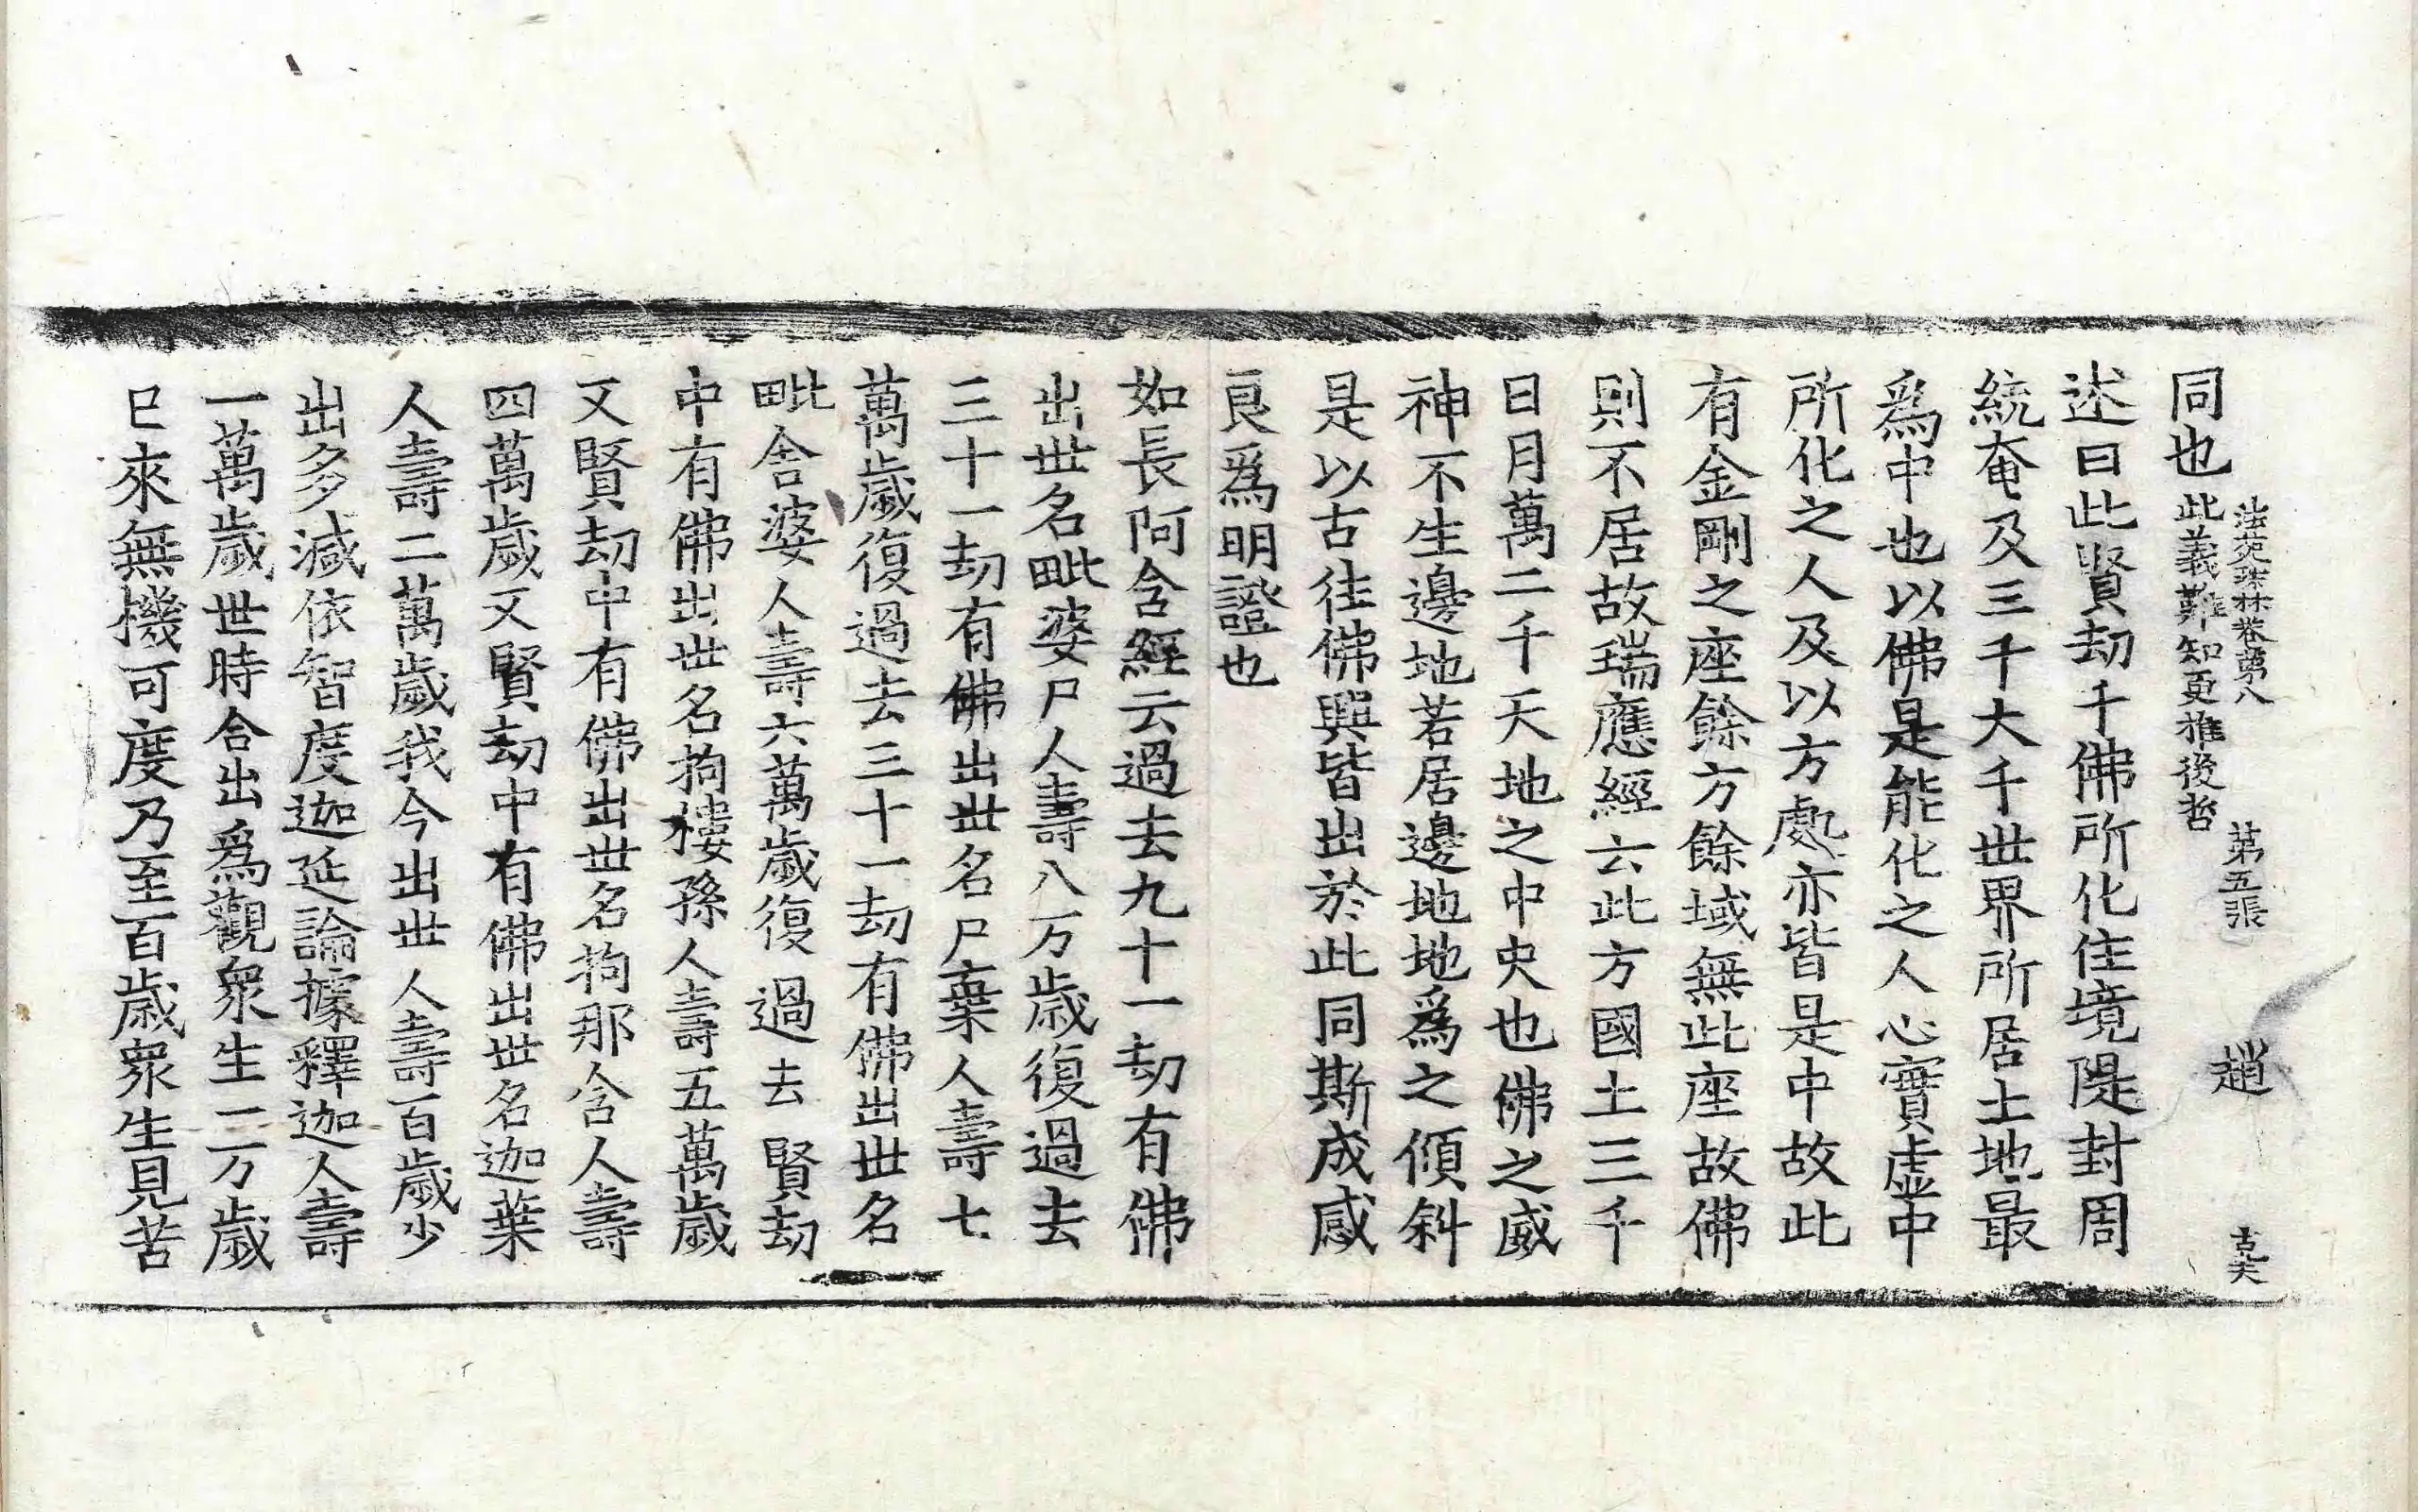 法苑珠林卷第八 第五張 趙 古大
同也此義難知更推後哲
述曰此賢劫千佛所化住境隄封周
統奄及三千大千世界所居土地最
爲中也以佛是能化之人心實虛中
所化之人及以方處亦皆是中故此
有金剛之座餘方餘域無此座故佛
則不居故瑞應經云此方國土三千
日月萬二千天地之中央也佛之威
神不生邊地若居邊地地爲之傾斜
是以古往佛興皆出於此同斯成感
良爲明證也
如長阿含經云過去九十一劫有佛
出世名毗婆尸人壽八万歲復過去
三十一劫有佛出世名尸棄人壽七
萬歲復過去三十一劫有佛出世名
毗舍婆人壽六萬歲復過去賢劫
中有佛出世名拘樓孫人壽五萬歲
又賢劫中有佛出世名拘那含人壽
四萬歲又賢劫中有佛出世名迦葉
人壽二萬歲我今出世人壽百歲少
出多減依智度迦延論據釋迦人壽
一萬歲世時合出爲觀衆生二万歲
已來無機可度乃至百歲衆生見苦